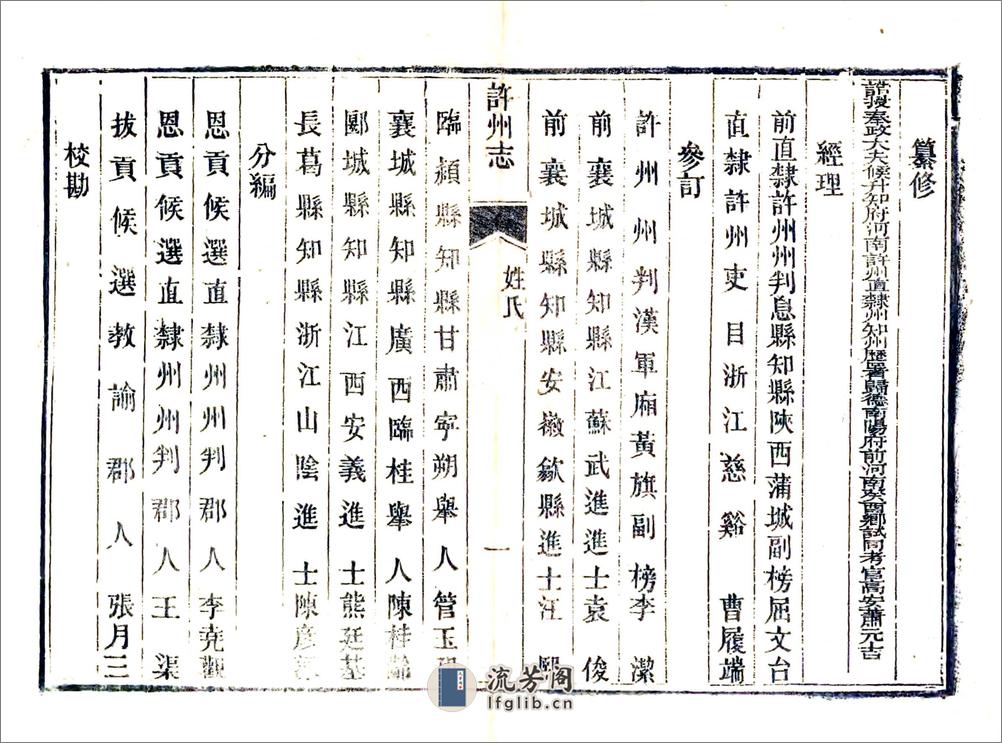 纂修
誥授奉政大夫候升知府河南許州直隸州知州歷署歸德南陽府前河南癸酉鄉試同考官高安蕭元吉
經理
前直隸許州州判息縣知縣陝西蒲城副榜屈文台
直隸許州吏目浙江慈谿曹履端
參訂
許州州判漢軍廂黃旗副榜李潔
前襄城縣知縣江蘇武進進士袁俊
前襄城縣知縣安徽歙縣進士汪熙
許州志
姓氏
一
臨潁縣知縣甘肅寧朔舉人管玉
襄城縣知縣廣西臨桂舉人陳桂
郾城縣知縣江西安義進士熊廷基
長葛縣知縣浙江山陰進士陳彥
分編
恩貢候選直隸州州判郡人李堯觀
恩貢候選直隸州州判郡人王渠
拔貢候選教諭郡人張月三
校勘
流芳閣
lfglib.cn